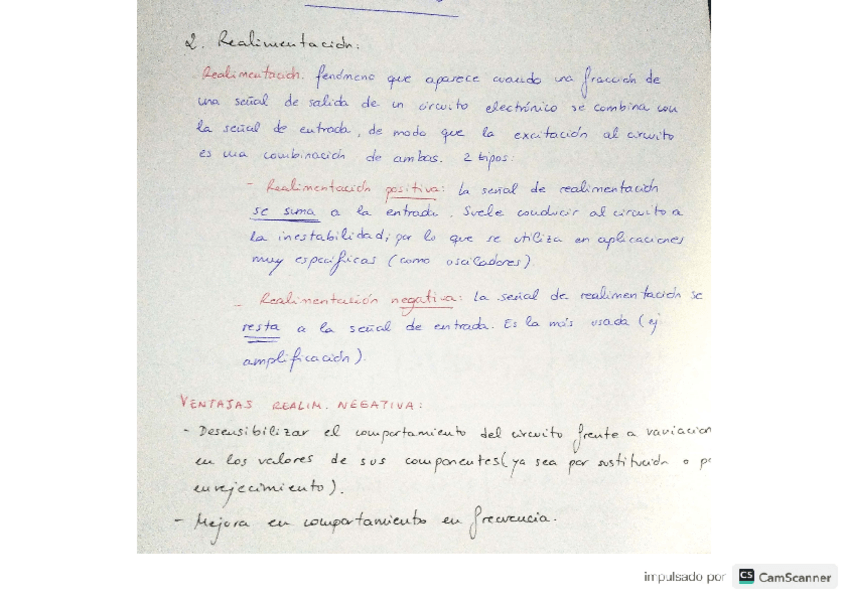 2. Realimentación:
Realimentación: fenómeno que aparece cuando una fracción de
una señal de salida de un circuito electrónico se combina con
la señal de entrada, de modo que la excitación al circuito
es una combinación de ambas. 2 tipos:
- Realimentación positiva: la señal de realimentación
se suma a la entrada. Suele conducir al circuito a
la inestabilidad; por lo que se utiliza en aplicaciones
muy específicas (como osciladores).
- Realimentación negativa: la señal de realimentación se
resta a la señal de entrada. Es la más usada (ej
amplificación).
VENTAJAS REALIM. NEGATIVA:
- Desensibilizar el comportamiento del circuito frente a variacion
en los valores de sus componentes (ya sea por sustitución o po
envejecimiento).
- Mejora en comportamiento en frecuencia.
impulsado por CS CamScanner